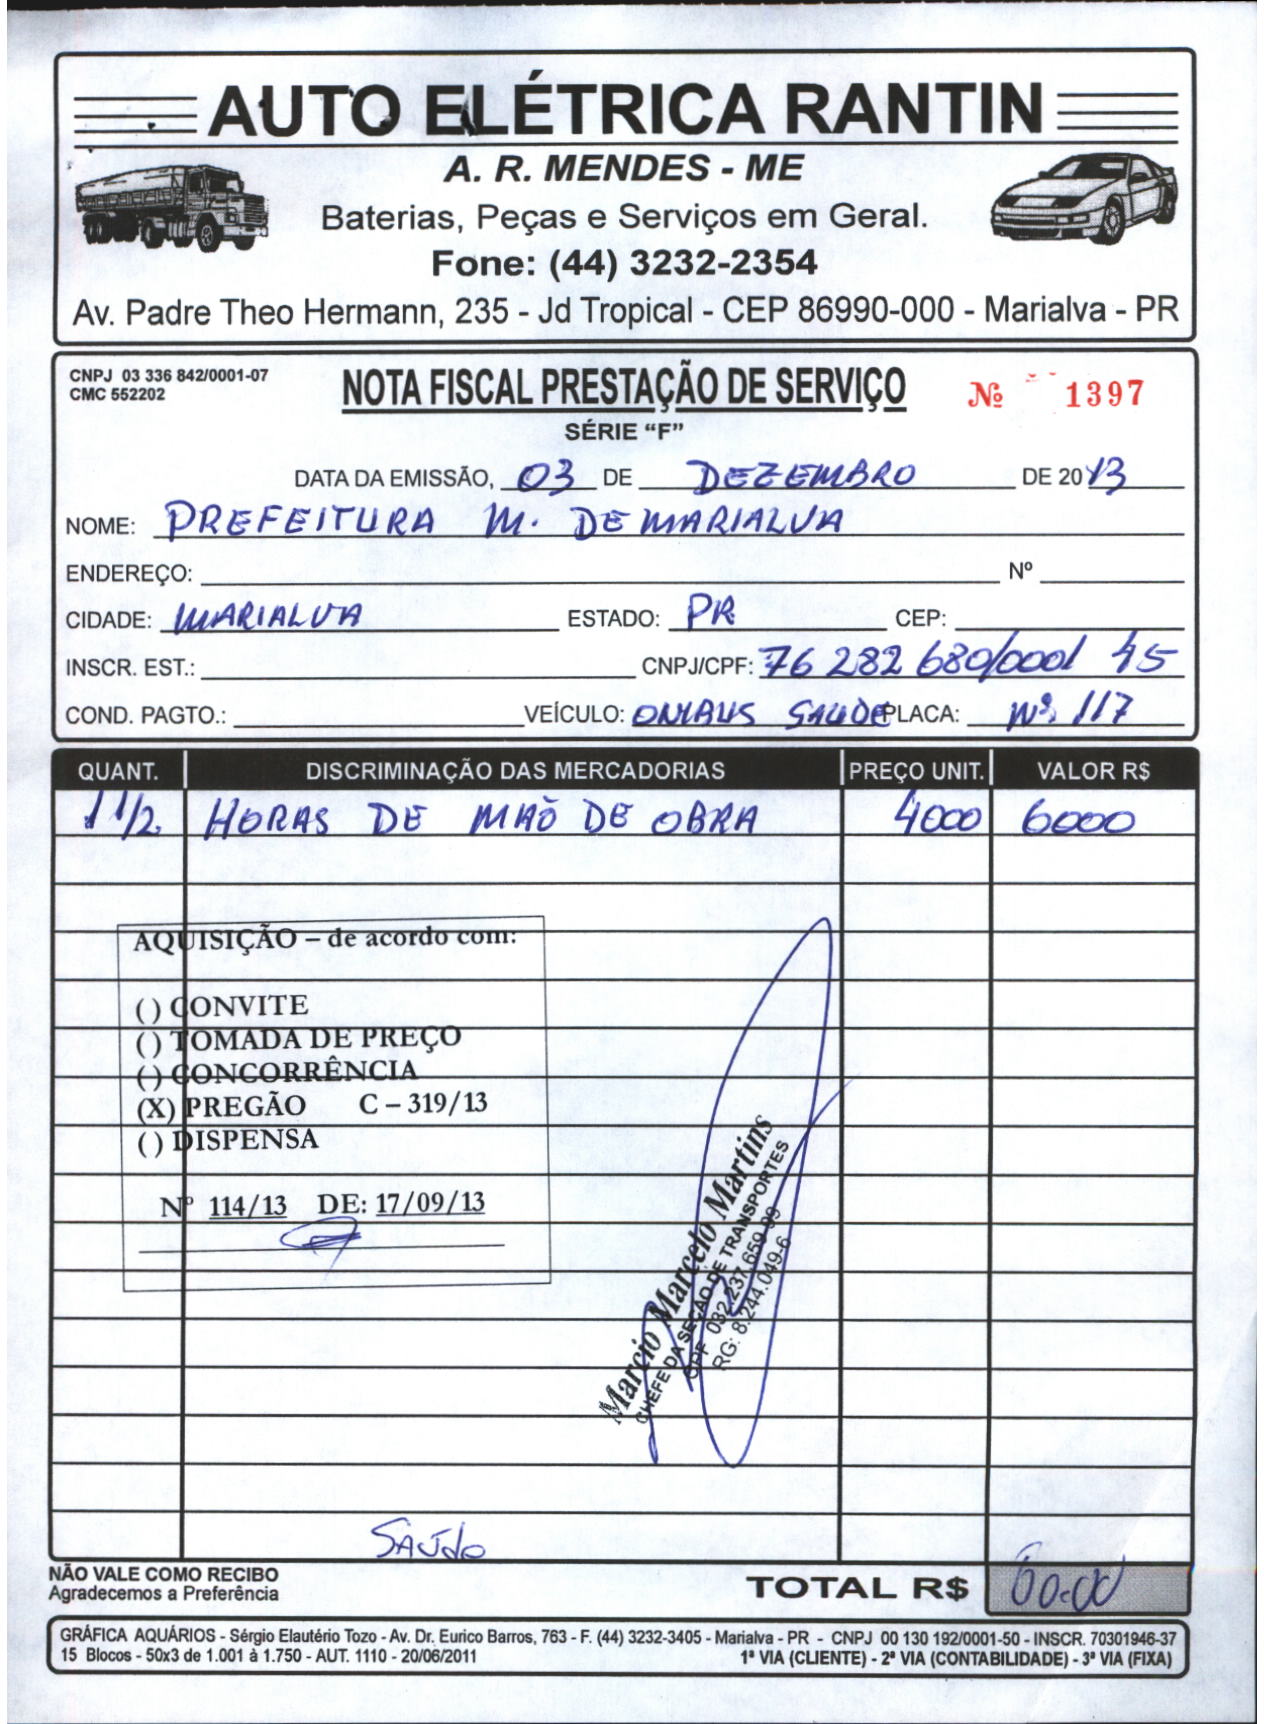 AUTO ELÉTRICA RANTIN
A. R. MENDES - ME
Baterias, Peças e Serviços em Geral.
Fone: (44) 3232-2354
Av. Padre Theo Hermann, 235 - Jd Tropical - CEP 86990-000 - Marialva - PR
CNPJ 03 336 842/0001-07
CMC 552202
NOTA FISCAL PRESTAÇÃO DE SERVIÇO
Nº 1397
SÉRIE “F”
DATA DA EMISSÃO, 03 DE DEZEMBRO DE 2013
NOME: PREFEITURA M. DE MARIALVA
ENDEREÇO: Nº
CIDADE: MARIALVA ESTADO: PR CEP:
INSCR. EST.: CNPJ/CPF: 76 282 680/0001 45
COND. PAGTO.: VEÍCULO: ONIBUS SAUDE PLACA: Nº 117
QUANT. DISCRIMINAÇÃO DAS MERCADORIAS PREÇO UNIT. VALOR R$
1 1/2 HORAS DE MÃO DE OBRA 4000 6000
AQUISIÇÃO – de acordo com:
( ) CONVITE
( ) TOMADA DE PREÇO
( ) CONCORRÊNCIA
(X) PREGÃO C – 319/13
( ) DISPENSA
Nº 114/13 DE: 17/09/13
Marcio Marcelo Martins
CHEFE DA SEÇÃO DE TRANSPORTES
CPF 032.237.659-99
RG: 8.244.049-6
NÃO VALE COMO RECIBO
Agradecemos a Preferência
TOTAL R$ 60.00
GRÁFICA AQUÁRIOS - Sérgio Elautério Tozo - Av. Dr. Eurico Barros, 763 - F. (44) 3232-3405 - Marialva - PR - CNPJ 00 130 192/0001-50 - INSCR. 70301946-37
15 Blocos - 50x3 de 1.001 à 1.750 - AUT. 1110 - 20/06/2011 1ª VIA (CLIENTE) - 2ª VIA (CONTABILIDADE) - 3ª VIA (FIXA)